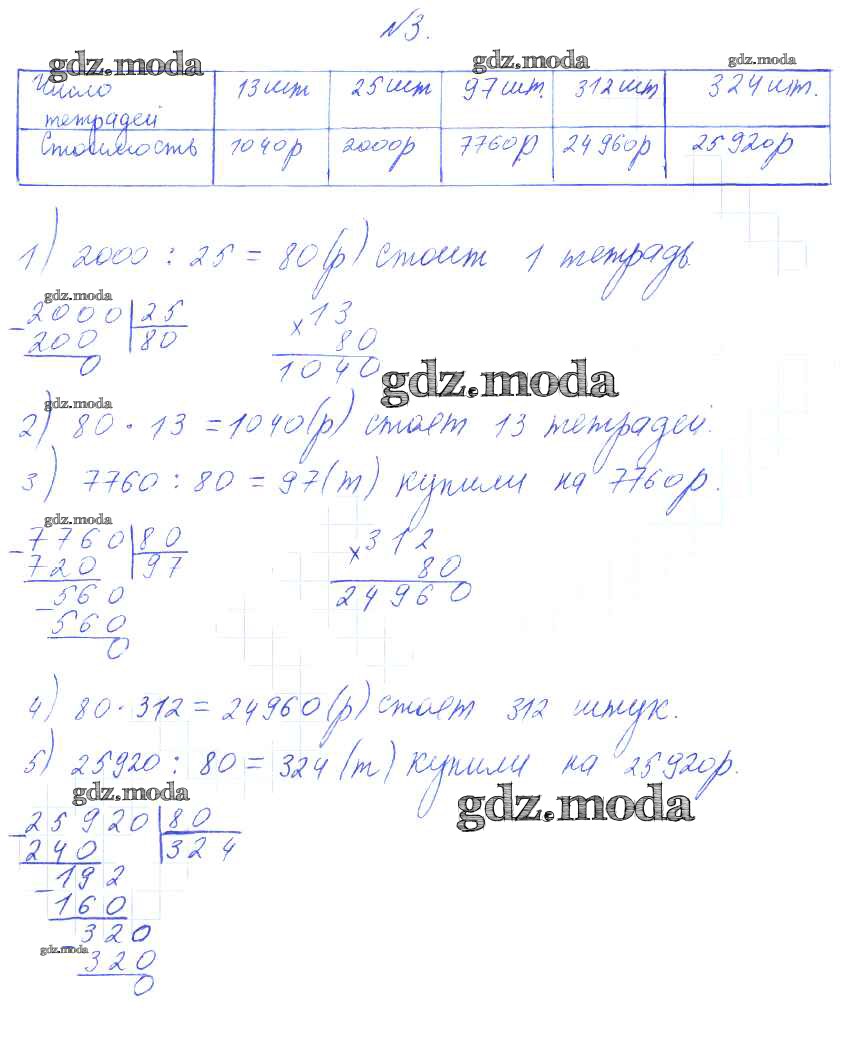 №3.
gdz.moda gdz.moda gdz.moda
Число 13шт 25шт 97шт. 312шт 324шт.
тетрадей
Стоимость 1040р 2000р 7760р 24960р 25920р
1) 2000 : 25 = 80(р) стоит 1 тетрадь.
gdz.moda
- 2000 25 × 13
200 80 80
0 1040
gdz.moda
gdz.moda
2) 80 · 13 = 1040(р) стоят 13 тетрадей.
3) 7760 : 80 = 97(т) купили на 7760р.
gdz.moda
- 7760 80 × 312
720 97 80
- 560 24960
560
0
4) 80 · 312 = 24960(р) стоят 312 штук.
5) 25920 : 80 = 324(т) купили на 25920р.
gdz.moda gdz.moda
- 25920 80
240 324
- 192
160
- 320
gdz.moda
320
0